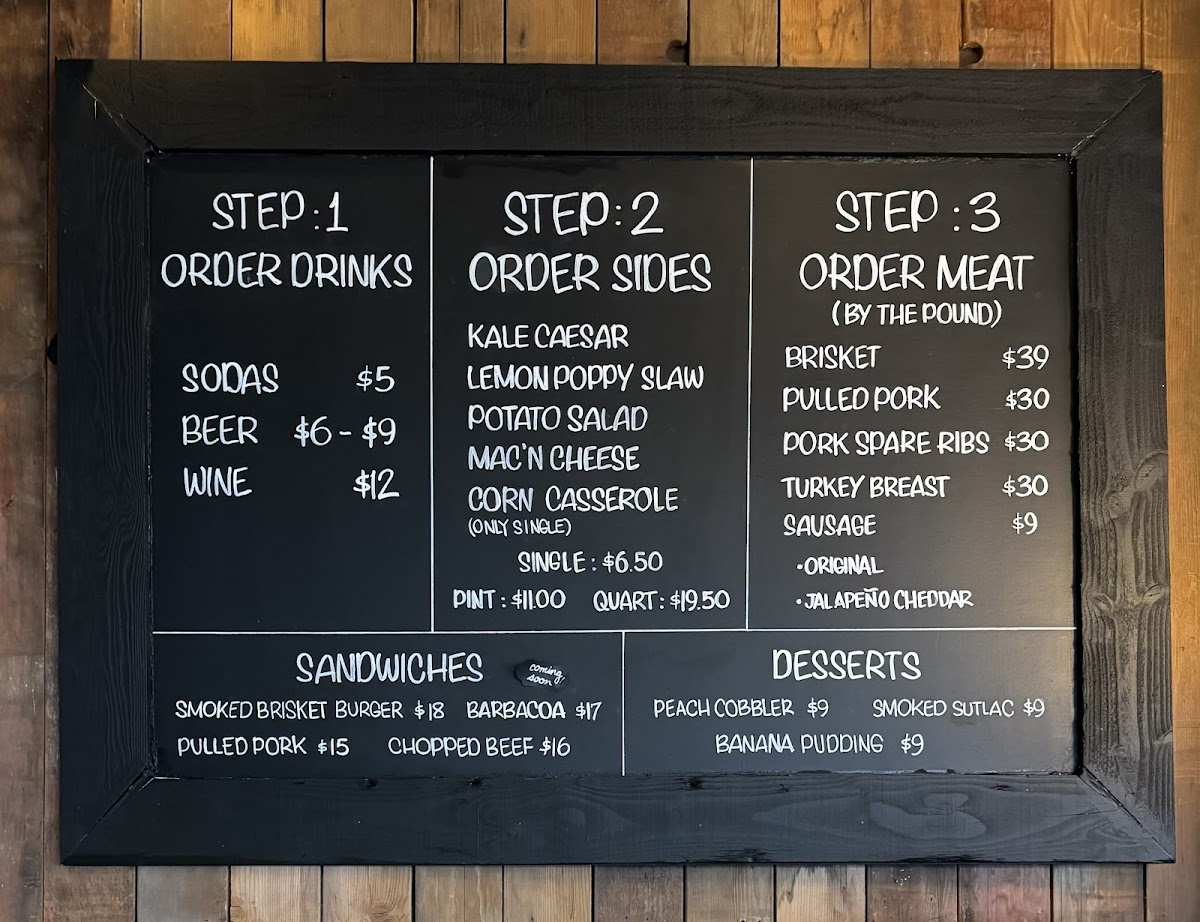 STEP:1
ORDER DRINKS
SODAS $5
BEER $6-$9
WINE $12
STEP:2
ORDER SIDES
KALE CAESAR
LEMON POPPY SLAW
POTATO SALAD
MAC'N CHEESE
CORN CASSEROLE
(ONLY SINGLE)
SINGLE: $6.50
PINT: $11.00 QUART: $19.50
STEP:3
ORDER MEAT
(BY THE POUND)
BRISKET $39
PULLED PORK $30
PORK SPARE RIBS $30
TURKEY BREAST $30
SAUSAGE $9
•ORIGINAL
•JALAPEÑO CHEDDAR
SANDWICHES
coming
soon!
SMOKED BRISKET BURGER $18 BARBACOA $17
PULLED PORK $15 CHOPPED BEEF $16
DESSERTS
PEACH COBBLER $9 SMOKED SUTLAC $9
BANANA PUDDING $9